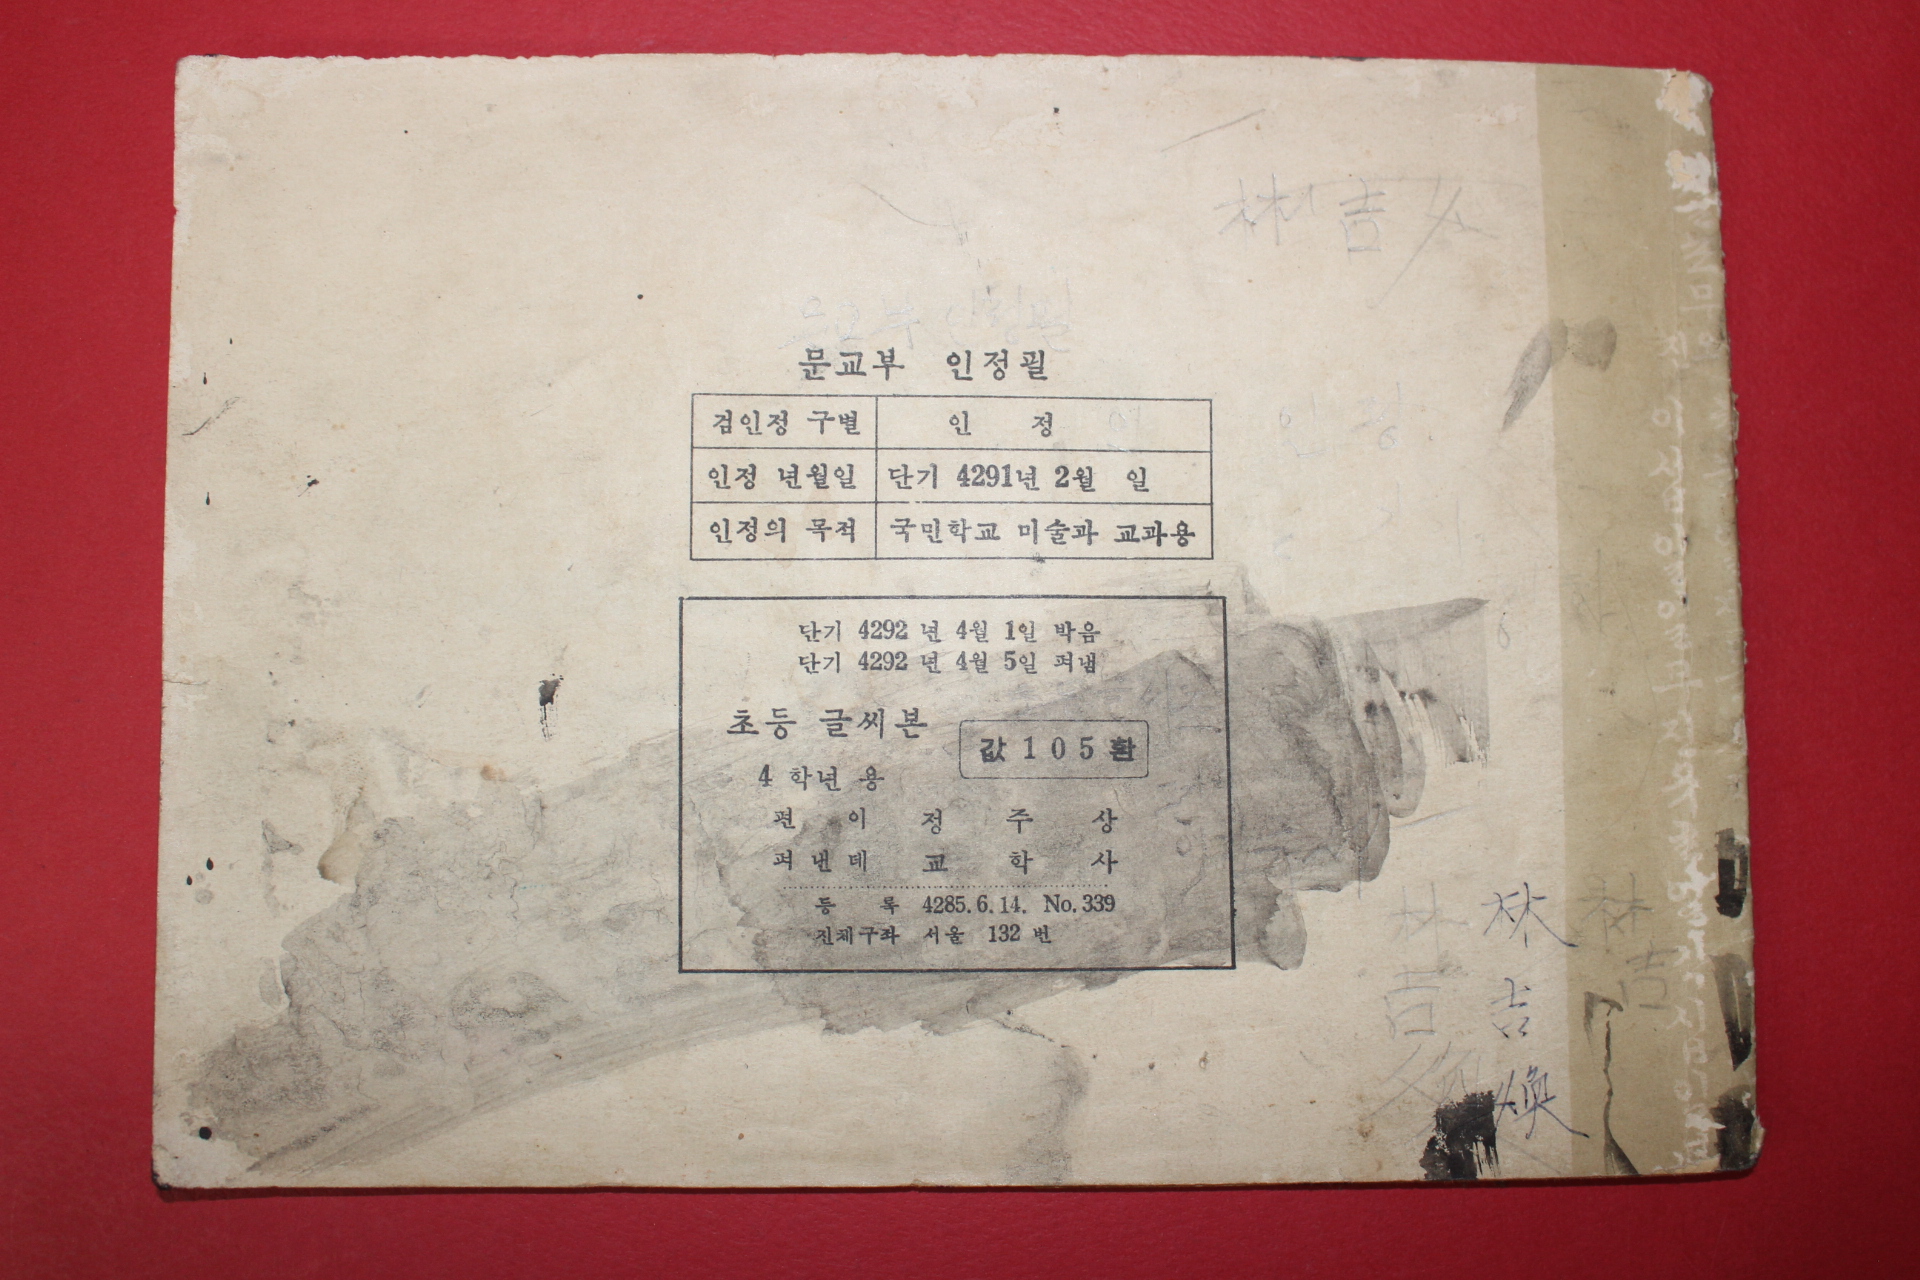 林吉
문교부 인정필
검인정 구별 인 정
인정 년월일 단기 4291년 2월 일
인정의 목적 국민학교 미술과 교과용
단기 4292 년 4월 1일 박음
단기 4292 년 4월 5일 펴냄
초등 글씨본
값 105 환
4 학년 용
편 이 정 주 상
펴 낸 데 교 학 사
등 록 4285. 6. 14. No. 339
진체구좌 서울 132 번
林吉
林吉煥
林吉